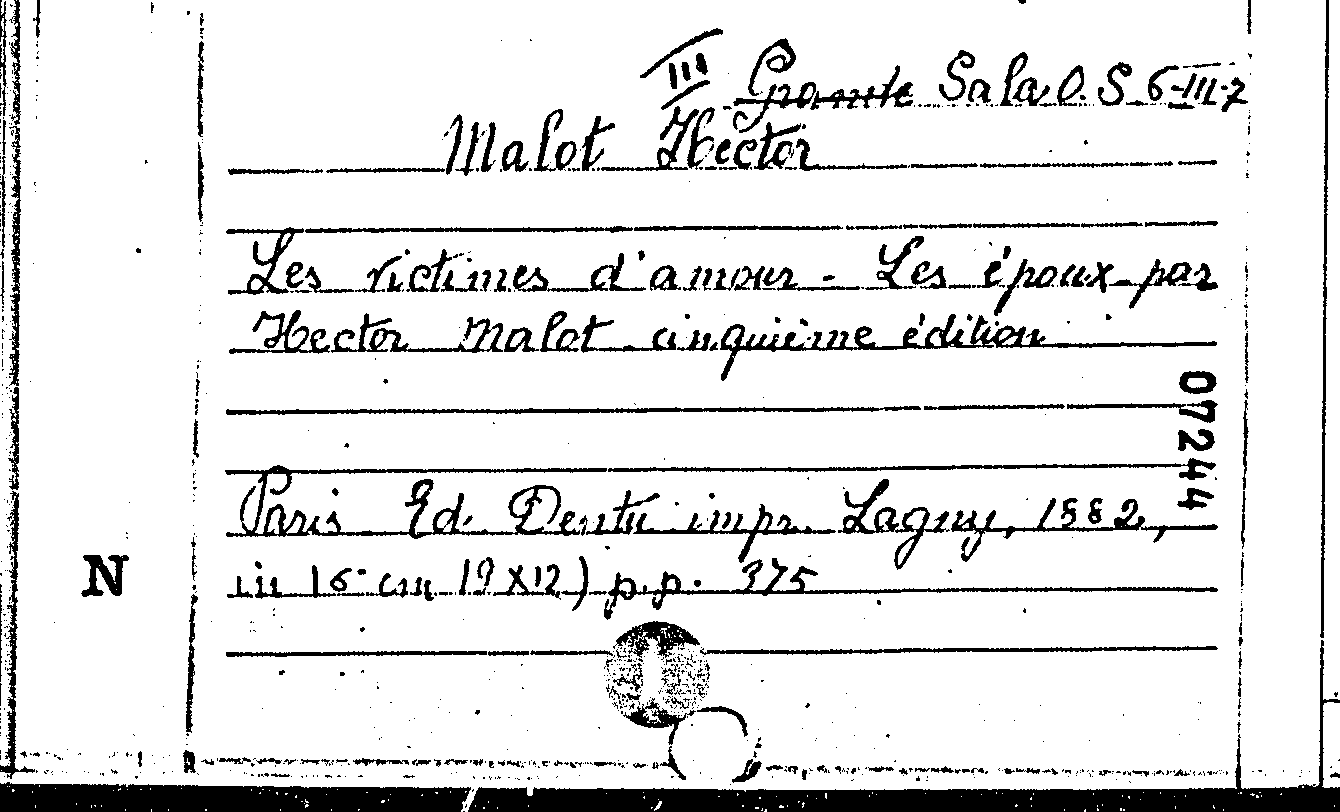 III Grande Sala O.S. 6-III-7
Malot Hector
Les victimes d'amour - Les époux par
Hector Malot cinquième édition
07244
Paris Ed. Dentu impr. Lagny, 1882,
in 16° cm 19 X12) p.p. 375
N